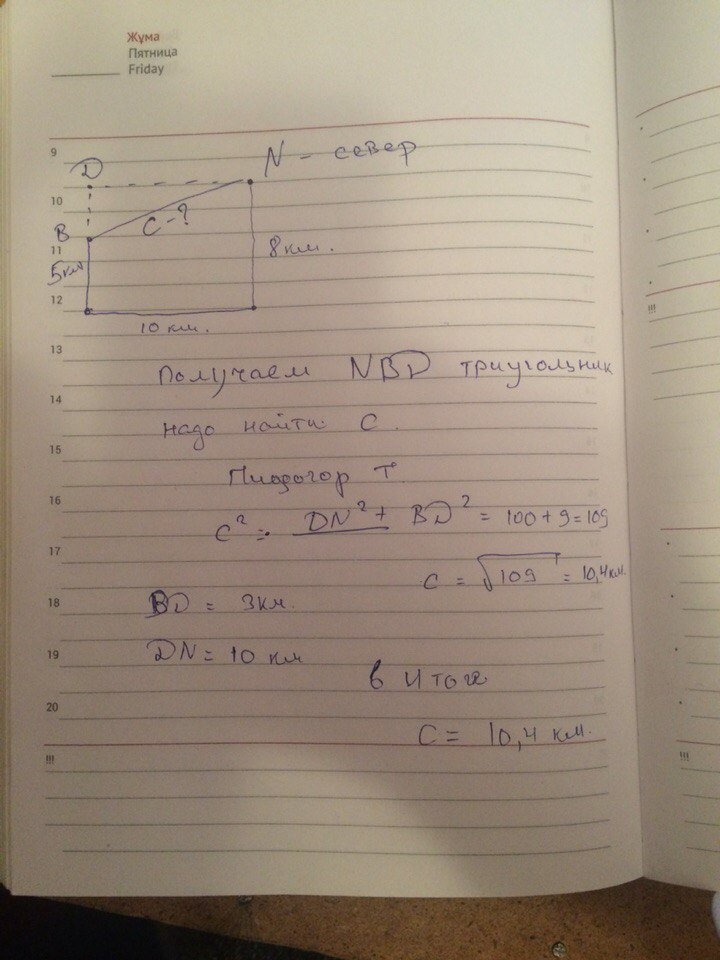 Жұма
Пятница
Friday
9
D
N - север
10
C-?
B
11
5км
8км.
12
10 км.
13
Получаем NBD треугольник
14
надо найти C.
15
Пиофагор Т.
16
C² = DN² + BD² = 100 + 9 = 109
17
C = √109 = 10,4 км.
18
BD = 3км.
19
DN = 10 км
в итоге
20
C = 10,4 км.
!!!
!!!
!!!